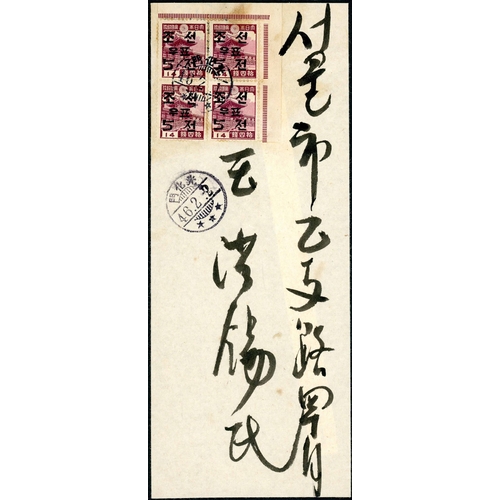 조선 조선
우표 우표
5전 5전
14 錢四拾 14 錢四拾
조선 조선
우표 우표
5전 5전
14 錢四拾 14 錢四拾
光化門
46.2
서울市乙支路四丁目
洪錫氏